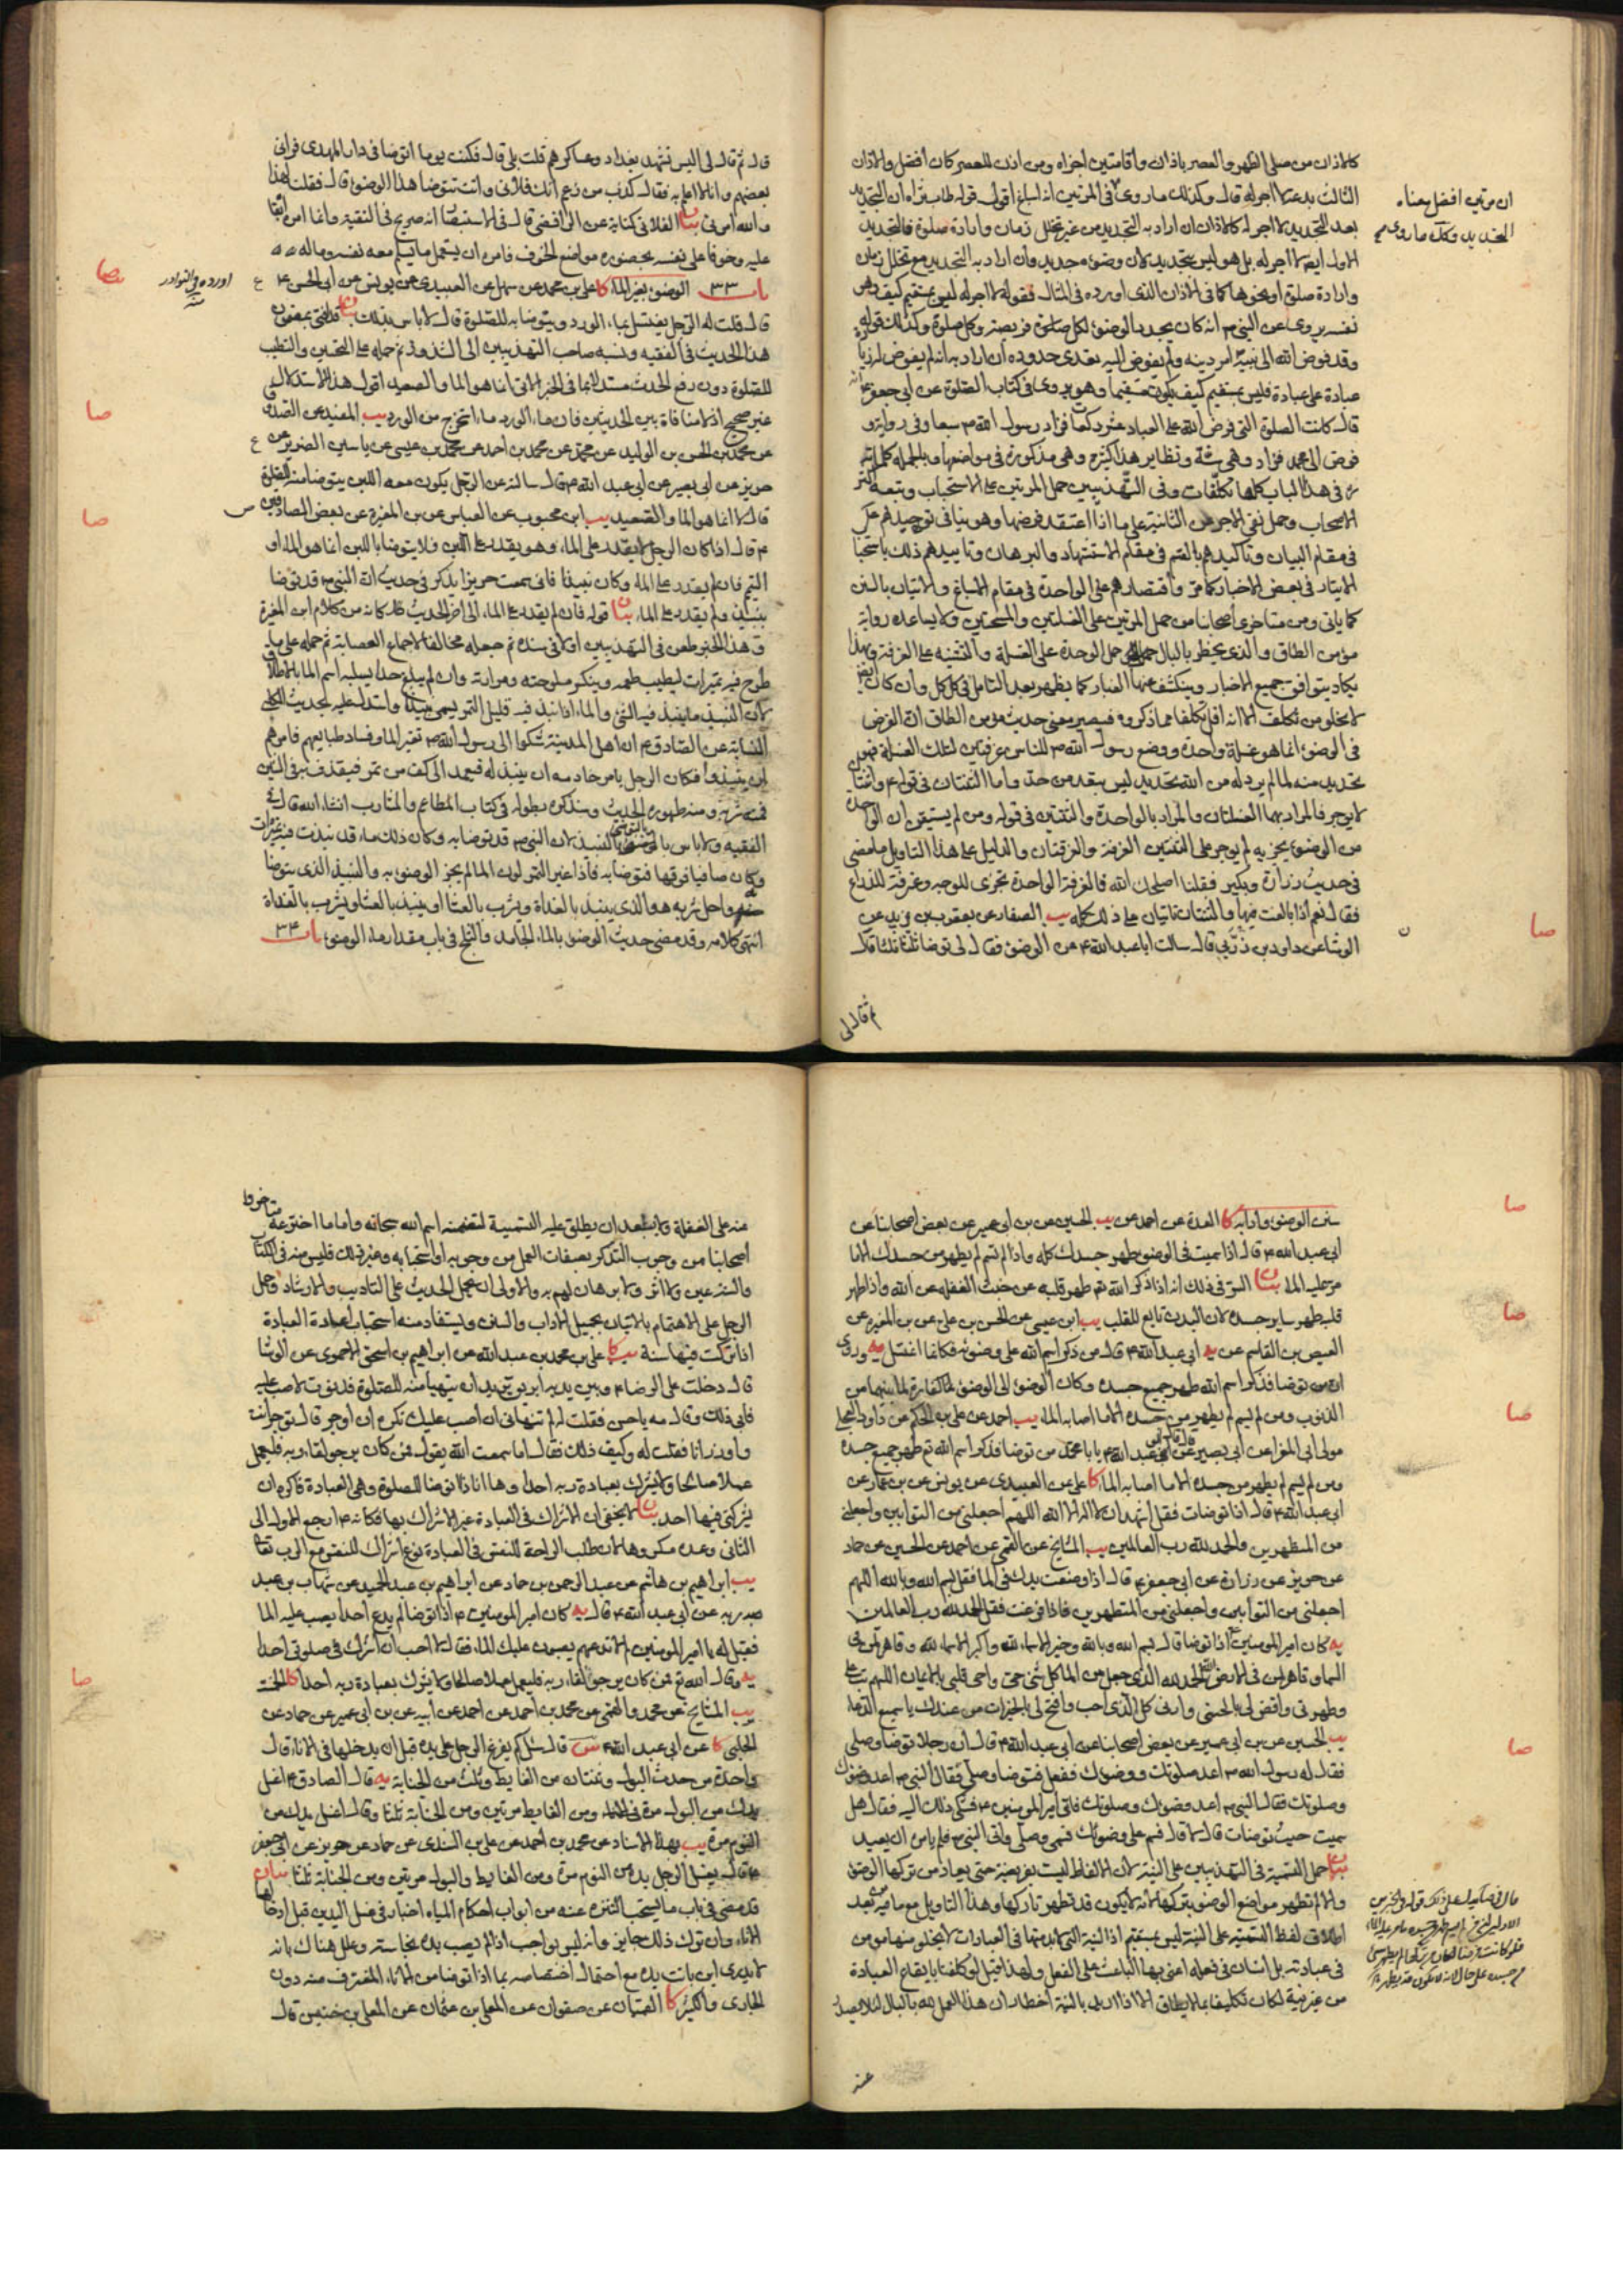 كالاذان من صلى الظهر والعصر باذان واقامتين اجزاه ومن اذن للعصر كان افضل والاذان
الثالث بدعة لا اجر له قال وكذلك ما روى في المرتين انه اسباغ اقول قوله طاب ثراه ان التجديد
بعد التجديد لا اجر له كالاذان ان اراد به التجديد من غير تخلل زمان وارادة صلوة فالتجديد
الاول ايضا لا اجر له بل هو ليس بتجديد لانه وضوء جديد وان اراد به التجديد مع تخلل زمان
وارادة صلوة او نحوها كما في الاذان الذى اورده في المثال فقوله لا اجر له ليس بمستقيم كيف وهو
نفسه يروى عن النبي ص انه كان يجدد الوضوء لكل فريضة وكل صلوة وكذلك قوله
وقد فوض الله الى نبيه امر دينه ولم يفوض اليه تعدى حدوده ان اراد به انه لم يفوض له زيادة
عبادة على عبادة فليس بمستقيم كيف يكون مستقيما وهو يروى في كتاب الصلوة عن ابي جعفر ع انه
قال كانت الصلوة التى فرض الله على العباد عشر ركعات فزاد رسول الله ص سبعا وفي رواية و
فوض الى محمد فزاد وهي سنة ونظاير هذا كثيرة وهي مذكورة في مواضعها وبالجملة كلماته
ره في هذا الباب كلها تكلفات وفي التهذيبين حمل المرتين على الاستحباب وتبعه اكثر
الاصحاب وحمل نفي الاجر عن الثانية على ما اذا اعتقد فرضها وهو ينافى توحيدهم ع
في مقام البيان وتاكيدهم بالقسم في مقام الاستشهاد والبرهان وتاييدهم ذلك باستحباب
الايتار في بعض الاخبار كما مر واقتصارهم على الواحدة في مقام الاسباغ والاتيان بالسنن
كما ياتى ومن متاخرى اصحابنا من حمل المرتين على الغسلتين والمسحتين ولا يساعده رواية
مؤمن الطاق والذى يخطر بالبال حمل الوحدة على الغسلة والتثنية على الغرفة وبهذا
يكاد يتوافق جميع الاخبار وينكشف عنها الغبار كما يظهر بعد التامل في كل كل وان كان ايضا
لا يخلو من تكلف الا انه اقل تكلفا مما ذكروه فيصير معنى حديث مؤمن الطاق ان الفرض
في الوضوء انما هو غسلة واحدة ووضع رسول الله ص للناس غرفتين لتلك الغسلة فهو
تحديد منه لما لم يرد له من الله تحديد ليس بتعد من حد واما الثنتان في قوله ع واثنتان
لا يوجر فالمراد بهما الغسلتان والمراد بالواحدة والثنتين في قوله ومن لم يستيقن ان الواحدة
من الوضوء يجزيه لم يوجر على الثنتين الغرفة والغرفتان والدليل على هذا التاويل ما مضى
في حديث زرارة وبكير فقلنا اصلحك الله فالغرفة الواحدة تجزى للوجه وغرفة للذراع
فقال نعم اذا بالغت فيها والثنتان تاتيان على ذلك كله يب الصفار عن يعقوب بن يزيد عن
الوشا عن داود بن زربى قال سالت ابا عبد الله ع عن الوضوء فقال لى توضا ثلثا ثلثا قال
ثم قال لى
ان مرتين افضل معناه
التجديد وكك ما روى
قال ثم قال لى اليس تشهد بغداد وعساكرهم قلت بلى قال فكنت يوما اتوضا في دار المهدى فرانى
بعضهم وانا لا اعلم به فقال كذب من زعم انك فلانى وانت تتوضا هذا الوضوء قال فقلت لهذا
والله امرنى بيان الفلانى كناية عن الرافضى قال في الاستبصار انه صريح في التقية وانما امره اتقاء
عليه وخوفا على نفسه بحضوره مواضع الخوف فامره ان يستعمل ما يسلم معه نفسه وماله
باب ٣٣ الوضوء بغير الماء كا علي بن محمد عن سهل عن العبيدى عن يونس عن ابى الحسن ع
قال قلت له الرجل يغتسل بماء الورد ويتوضا به للصلوة قال لا باس بذلك بيان افتى بمضمون
هذا الحديث في الفقيه ونسبه صاحب التهذيبين الى الشذوذ ثم حمله على التحسين والتطيب
للصلوة دون رفع الحدث مستدلا بما في الخبر الاتى انما هو الماء والصعيد اقول هذا الاستدلال
غير صحيح اذ لا منافاة بين الحديثين فان ماء الورد ماء استخرج من الورد يب المفيد عن الصدوق
عن محمد بن الحسن بن الوليد عن محمد عن محمد بن احمد عن محمد بن عيسى عن ياسين الضرير عن
حريز عن ابى بصير عن ابى عبد الله ع قال سالته عن الرجل يكون معه اللبن يتوضا منه للصلوة
قال لا انما هو الماء والصعيد يب ابن محبوب عن العباس عن بن المغيرة عن بعض الصادقين
ع قال اذا كان الرجل لا يقدر على الماء وهو يقدر على اللبن فلا يتوضا باللبن انما هو الماء او
التيمم فان لم يقدر على الماء وكان نبيذا فانى سمعت حريزا يذكر في حديث ان النبى ص قد توضا
بنبيذ ولم يقدر على الماء بيان قوله فان لم يقدر على الماء الى اخر الحديث كانه من كلام ابن المغيرة
وهذا الخبر طعن في التهذيبين اولا في سنده ثم جعله مخالفا لاجماع العصابة ثم حمله على ما
طرح فيه تميرات ليطيب طعمه وينكسر ملوحته ومرارته وان لم يبلغ حدا يسلبه اسم الماء بالاطلاق
لان النبيذ ما ينبذ فيه الشئ والماء اذا نبذ فيه قليل التمر يسمى نبيذا واستدل عليه بحديث الكلبى
النسابة عن الصادق ع ان اهل المدينة شكوا الى رسول الله ص تغير الماء وفساد طبايعهم فامرهم
ان ينبذوا فكان الرجل يامر خادمه ان ينبذ له فيعمد الى كف من تمر فيقذف به في الشن
فمنه شربه ومنه طهوره الحديث وسنذكره بطوله في كتاب المطاعم والمشارب انشاء الله قال في
الفقيه ولا باس بالتوضى بالنبيذ لان النبى ص قد توضا به وكان ذلك ماء قد نبذت فيه تميرات
وكان صافيا فوقها فتوضا به فاذا غير التمر لون الماء لم يجز الوضوء به والنبيذ الذى يتوضا
واحل شربه هو الذى ينبذ بالغداة ويشرب بالعشاء او ينبذ بالعشاء ويشرب بالغداة
انتهى كلامه وقد مضى حديث الوضوء بالماء الجامد والثلج في باب مقدار ماء الوضوء باب ٣٤
اورده في النوادر
سنن الوضوء وادابه كا العدة عن احمد عن يب الحسين عن بن ابى عمير عن بعض اصحابنا عن
ابى عبد الله ع قال اذا سميت في الوضوء طهر جسدك كله واذا لم تسم لم يطهر من جسدك الا ما
مر عليه الماء بيان السر في ذلك انه اذا ذكر الله ثم طهر قلبه عن خبث الغفلة عن الله واذا طهر
قلبه طهر ساير جسده لان البدن تابع للقلب يب ابن عيسى عن الحسن بن علي عن بن المغيرة عن
العيص بن القاسم عن يه ابى عبد الله ع قال من ذكر اسم الله على وضوئه فكانما اغتسل يه وروى
ان من توضا فذكر اسم الله طهر جميع جسده وكان الوضوء الى الوضوء كفارة لما بينهما من
الذنوب ومن لم يسم لم يطهر من جسده الا ما اصابه الماء يب احمد عن علي بن الحكم عن داود العجلى
مولى ابى المغرا عن ابى بصير قال قال ابو عبد الله ع يا با محمد من توضا فذكر اسم الله ثم طهر جميع جسده
ومن لم يسم لم يطهر من جسده الا ما اصابه الماء كا علي عن العبيدى عن يونس عن بن عمار عن
ابى عبد الله ع قال اذا توضات فقل اشهد ان لا اله الا الله اللهم اجعلنى من التوابين واجعلنى
من المتطهرين والحمد لله رب العالمين يب المشايخ عن القمى عن احمد عن الحسين عن حماد
عن حريز عن زرارة عن ابى جعفر ع قال اذا وضعت يدك في الماء فقل بسم الله وبالله اللهم
اجعلنى من التوابين واجعلنى من المتطهرين فاذا فرغت فقل الحمد لله رب العالمين
يه كان امير المؤمنين ع اذا توضا قال بسم الله وبالله وخير الاسماء لله واكبر الاسماء لله وقاهر لمن في
السماء وقاهر لمن في الارض الحمد لله الذى جعل من الماء كل شئ حى واحى قلبى بالايمان اللهم تب على
وطهرنى واقض لى بالحسنى وارنى كل الذى احب وافتح لى بالخيرات من عندك يا سميع الدعاء
يب الحسين عن بن ابى عمير عن بعض اصحابنا عن ابى عبد الله ع قال ان رجلا توضا وصلى
فقال له رسول الله ص اعد صلوتك ووضوءك ففعل فتوضا وصلى فقال النبى ص اعد وضوءك
وصلوتك فقال النبى ص اعد وضوءك وصلوتك فاتى امير المؤمنين ع فشكى ذلك اليه فقال هل
سميت حيث توضات قال لا قال سم على وضوئك فسمى وصلى واتى النبى ص فلم يامره ان يعيد
بيان حمل التسمية في التهذيبين على النية لان الالفاظ ليست بفريضة حتى يعاد من تركها الوضوء
والا لم تطهر مواضع الوضوء بتركها لانه لا يكون قد تطهر تاركها وهذا التاويل مع ما فيه من بعد
اطلاق لفظ التسمية على النية ليس بمستقيم اذ النية التى لا بد منها في العبادات لا يخلو منها مؤمن
في عبادته بل انسان في فعله اعنى بها الباعث على الفعل ولهذا قيل لو كلفنا بايقاع العبادة
من غير نية لكان تكليفا بما لا يطاق الا اذا اريد بالنية اخطار ان هذا العمل لله بالبال لئلا يصدر
عنه
عنه على الغفلة ولا يبعد ان يطلق عليه التسمية لتضمنه اسم الله سبحانه واما ما اخترعه متاخروا
اصحابنا من وجوب التذكر بصفات العمل من وجوبه او استحبابه وغير ذلك فليس منه في الكتاب
والسنة عين ولا اثر ولا برهان لهم به والاولى ان يحمل الحديث على التاديب والارشاد وحمل
الرجل على الاهتمام بالاتيان بجميل الاداب والسنن ويستفاد منه استحباب اعادة العبادة
اذا تركت فيها سنة يب كا علي بن محمد بن عبد الله عن ابراهيم بن اسحق الاحمرى عن الوشا
قال دخلت على الرضا ع وبين يديه ابريق يريد ان يتهيا منه للصلوة فدنوت لاصب عليه
فابى ذلك وقال مه يا حسن فقلت له لم تنهانى ان اصب عليك تكره ان اوجر قال توجر انت
واوزر انا فقلت له وكيف ذلك فقال اما سمعت الله يقول فمن كان يرجو لقاء ربه فليعمل
عملا صالحا ولا يشرك بعبادة ربه احدا وها انا ذا اتوضا للصلوة وهى العبادة فاكره ان
يشركنى فيها احد بيان لا يخفى ان الاشراك في العبادة غير الاشراك بها فكانه ع ارجع الاول الى
الثانى وعده مكروها لان طلب الراحة للنفس في العبادة نوع اشراك للنفس مع الرب تعا
يب ابراهيم بن هاشم عن عبد الرحمن بن حماد عن ابراهيم بن عبد الحميد عن شهاب بن عبد
ربه عن ابى عبد الله ع قال يه كان امير المؤمنين ع اذا توضا لم يدع احدا يصب عليه الماء
فقيل له يا امير المؤمنين لم لا تدعهم يصبون عليك الماء فقال لا احب ان اشرك في صلوتى احدا
يه وقال الله تع فمن كان يرجو لقاء ربه فليعمل عملا صالحا ولا يشرك بعبادة ربه احدا كا الخمسة
يب المشايخ عن محمد والقمى عن محمد بن احمد عن احمد عن ابيه عن بن ابى عمير عن حماد عن
الحلبى كا عن ابى عبد الله ع ش قال سئل كم يفرغ الرجل على يده قبل ان يدخلها في الاناء قال
واحدة من حدث البول وثنتان من الغايط وثلث من الجنابة يه قال الصادق ع اغسل
يدك من البول مرة ومن الغايط مرتين ومن الجنابة ثلثا وقال اغسل يدك من
النوم مرة يب بهذا الاسناد عن محمد بن احمد عن علي بن السندى عن حماد عن حريز عن ابى جعفر
ع قال يغسل الرجل يده من النوم مرة ومن الغايط والبول مرتين ومن الجنابة ثلثا بيان
قد مضى في باب ما يستحب التنزه عنه من ابواب احكام المياه اخبار في غسل اليدين قبل ادخالهما
الاناء وان ترك ذلك جايز وانه ليس بواجب اذا لم يصب يده نجاسة وعلل هناك بانه
لا يدرى اين باتت يده مع احتمال اختصاصه بما اذا توضا من الاناء المغترف منه دون
الجارى والكثير كا القميان عن صفوان عن المعلى بن عثمان عن المعلى بن خنيس قال